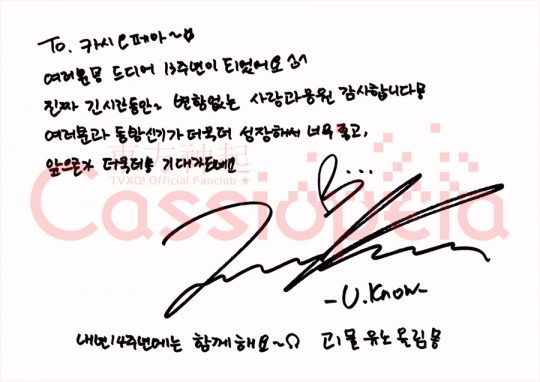 To. 카시오페아~
여러분 드디어 13주년이 되었어요
진짜 긴시간동안 변함없는 사랑과 응원 감사합니다
여러분과 동방신기가 더욱더 성장해서 너무 좋고,
앞으로가 더욱더 기대가되네요
東方神起
TVXQ! Official Fanclub ★
Cassiopeia
B...
-U.Know-
내년 14주년에는 함께해요~ 리더 유노윤호 올림